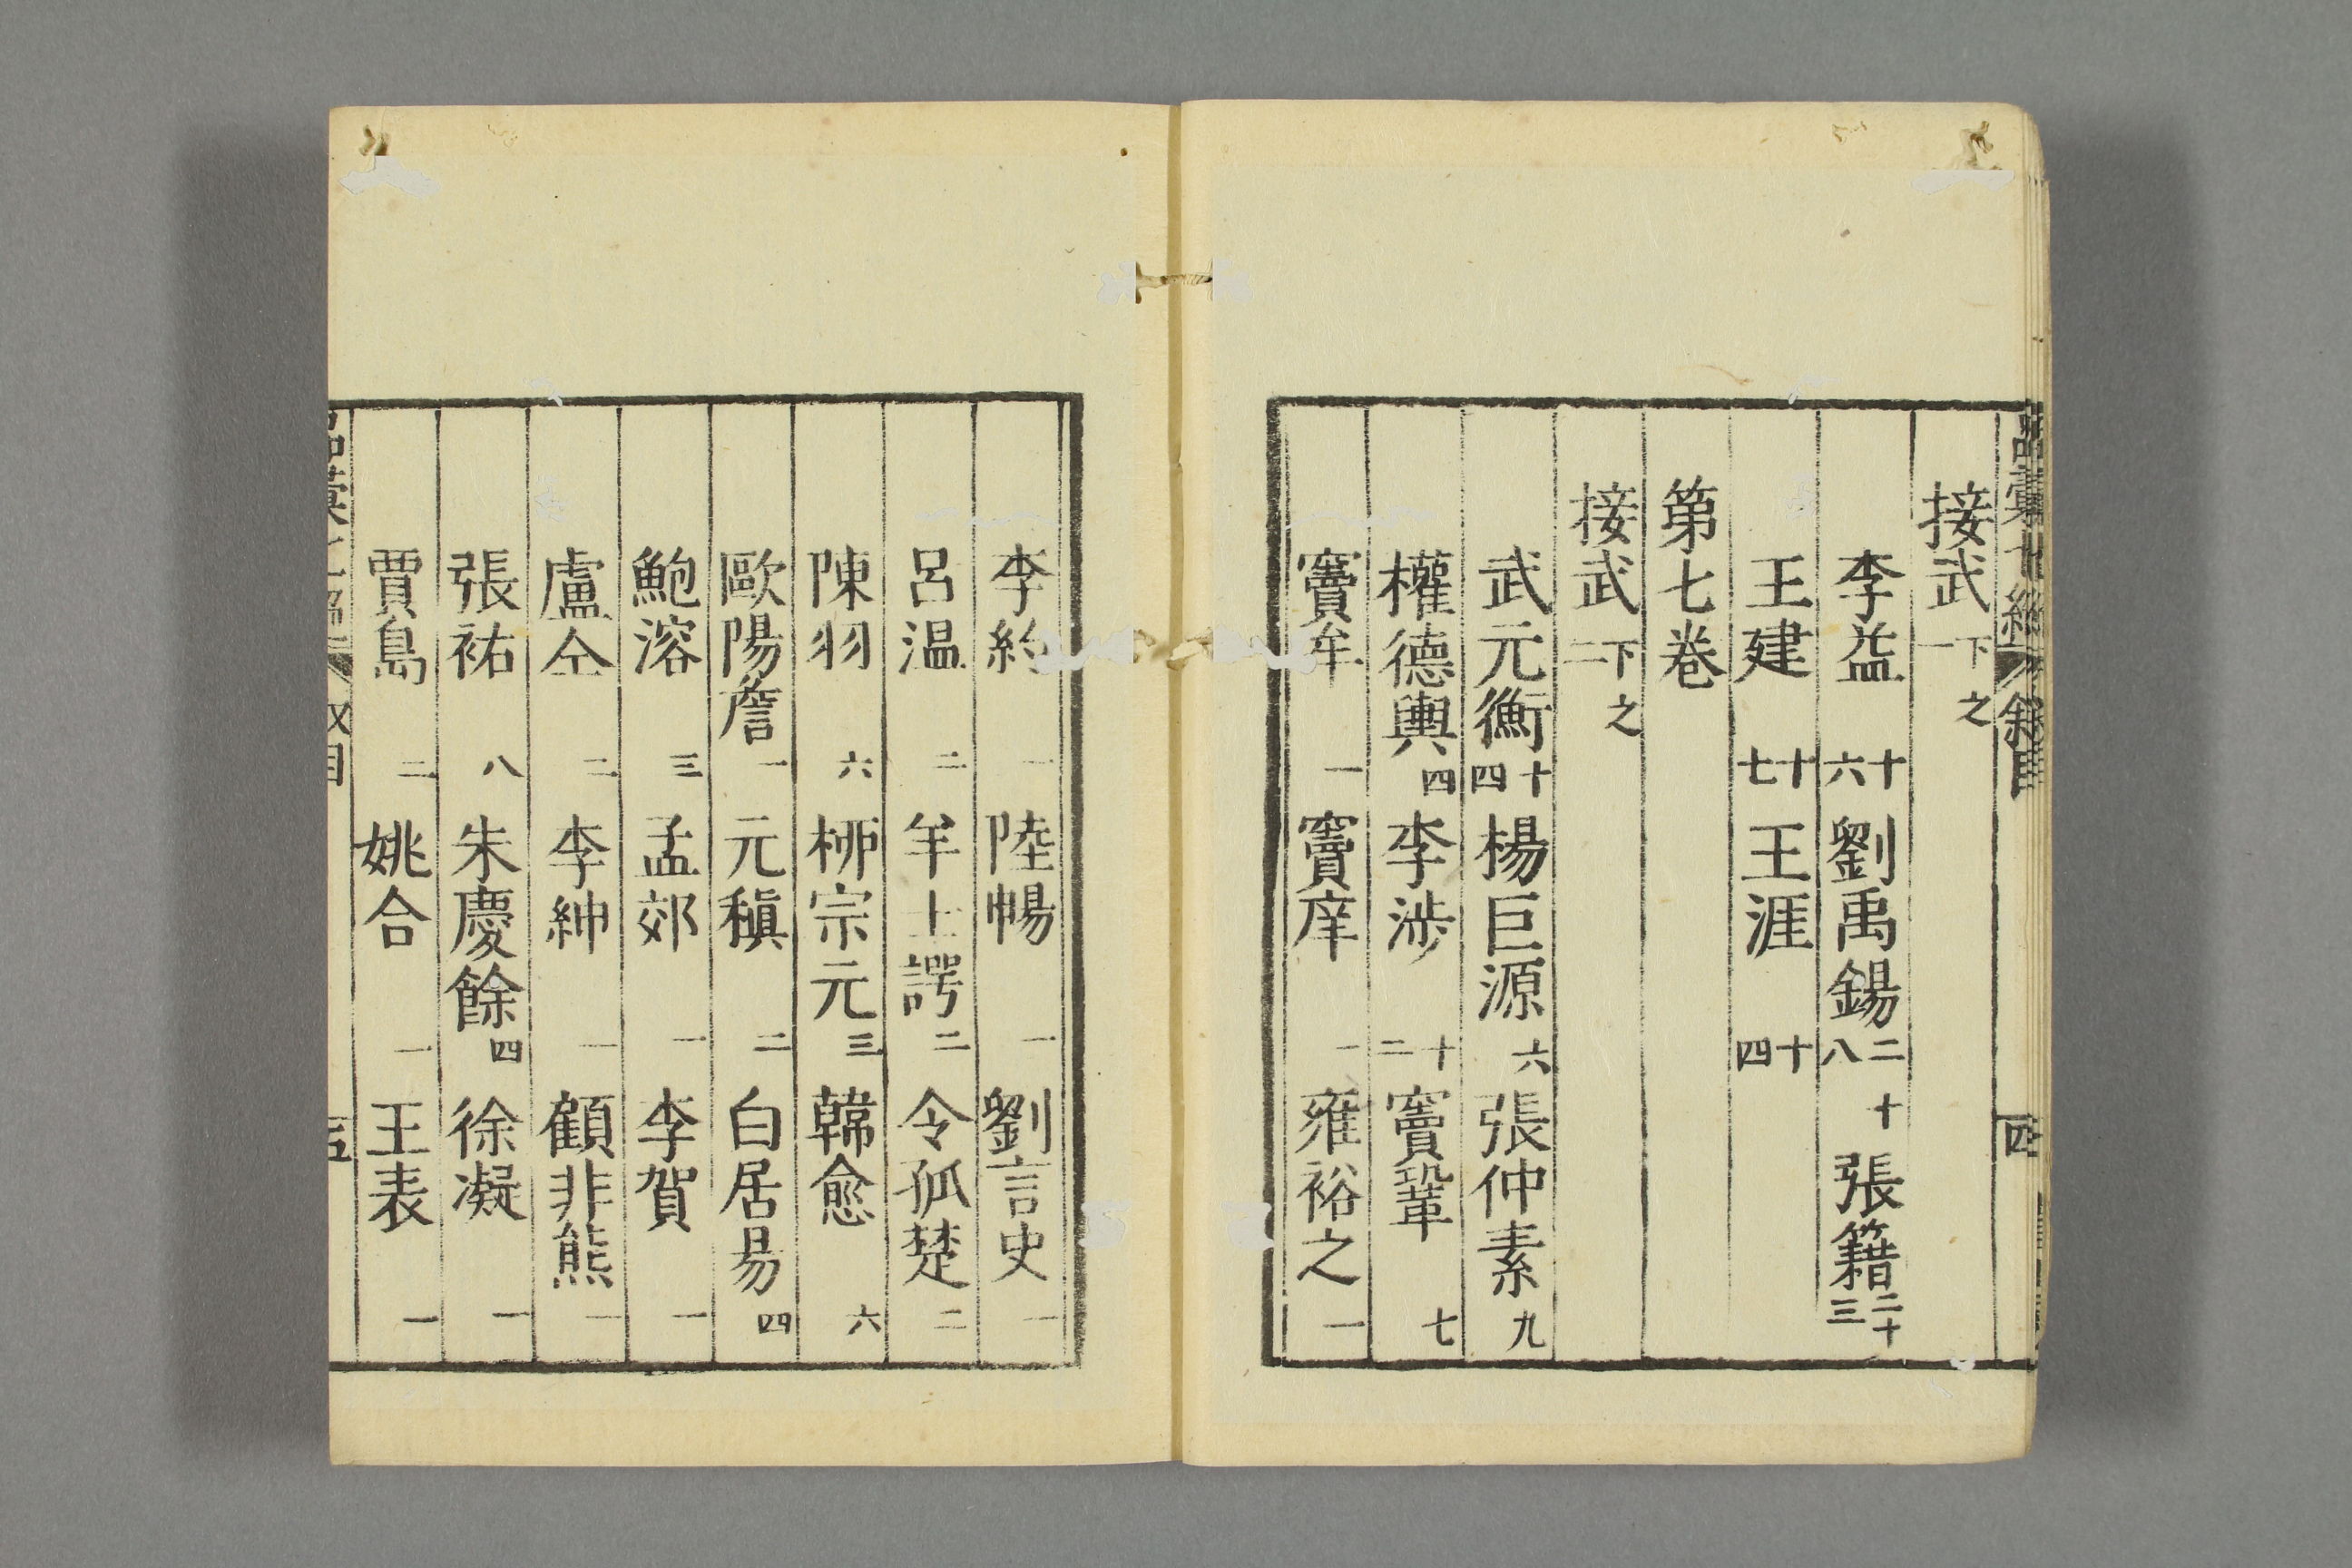 接武 下之一
李益 十六 劉禹錫 二十八 張籍 二十三
王建 十七 王涯 十四
第七卷
接武 下之二
武元衡 十四 楊巨源 六 張仲素 九
權德輿 四 李涉 十二 竇鞏 七
竇牟 一 竇庠 一 雍裕之 一
四
李約 一 陸暢 一 劉言史 一
呂温 二 羊士諤 二 令狐楚 二
陳羽 六 柳宗元 三 韓愈 六
歐陽詹 一 元稹 二 白居易 四
鮑溶 三 孟郊 一 李賀 一
盧仝 二 李紳 一 顧非熊 一
張祐 八 朱慶餘 四 徐凝 一
賈島 二 姚合 一 王表 一